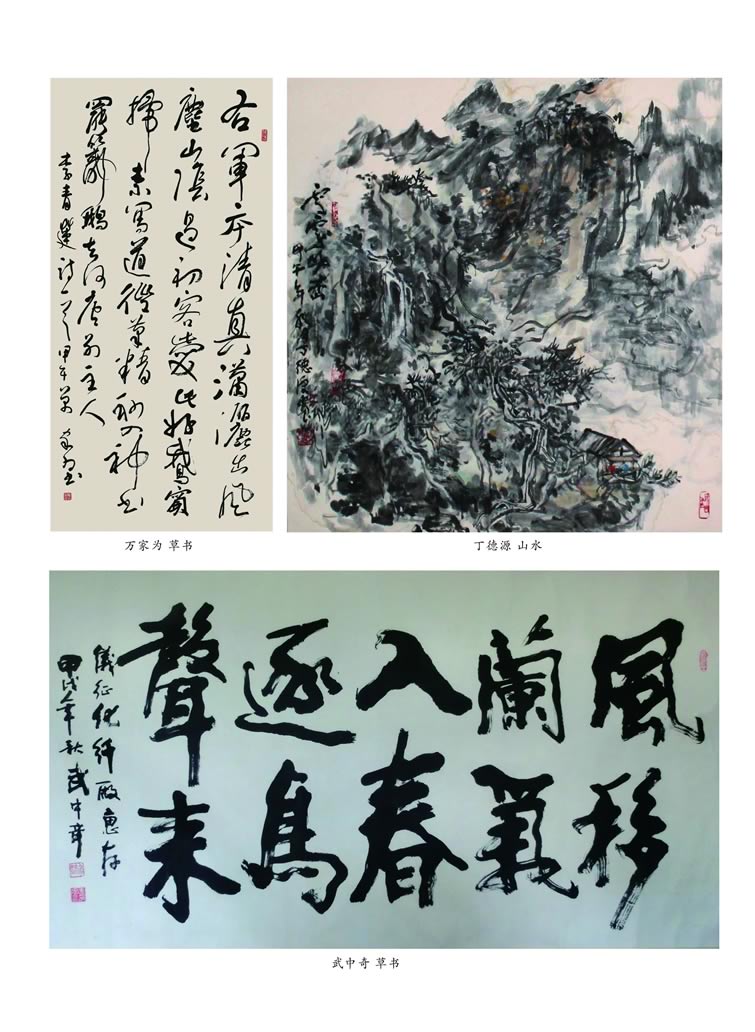 右軍本清真瀟灑出風
塵山陰過羽客愛此好鵝賓
掃素寫道經筆精妙入神書
罷籠鵝去何曾別主人
李青蓮詩一首甲午萬家為書
万家为 草书
甲午年秋丁德源
丁德源 山水
風移
蘭氣
入春
逐鳥
聲來
儀征化纤厰惠存
甲戌年秋武中奇
武中奇 草书